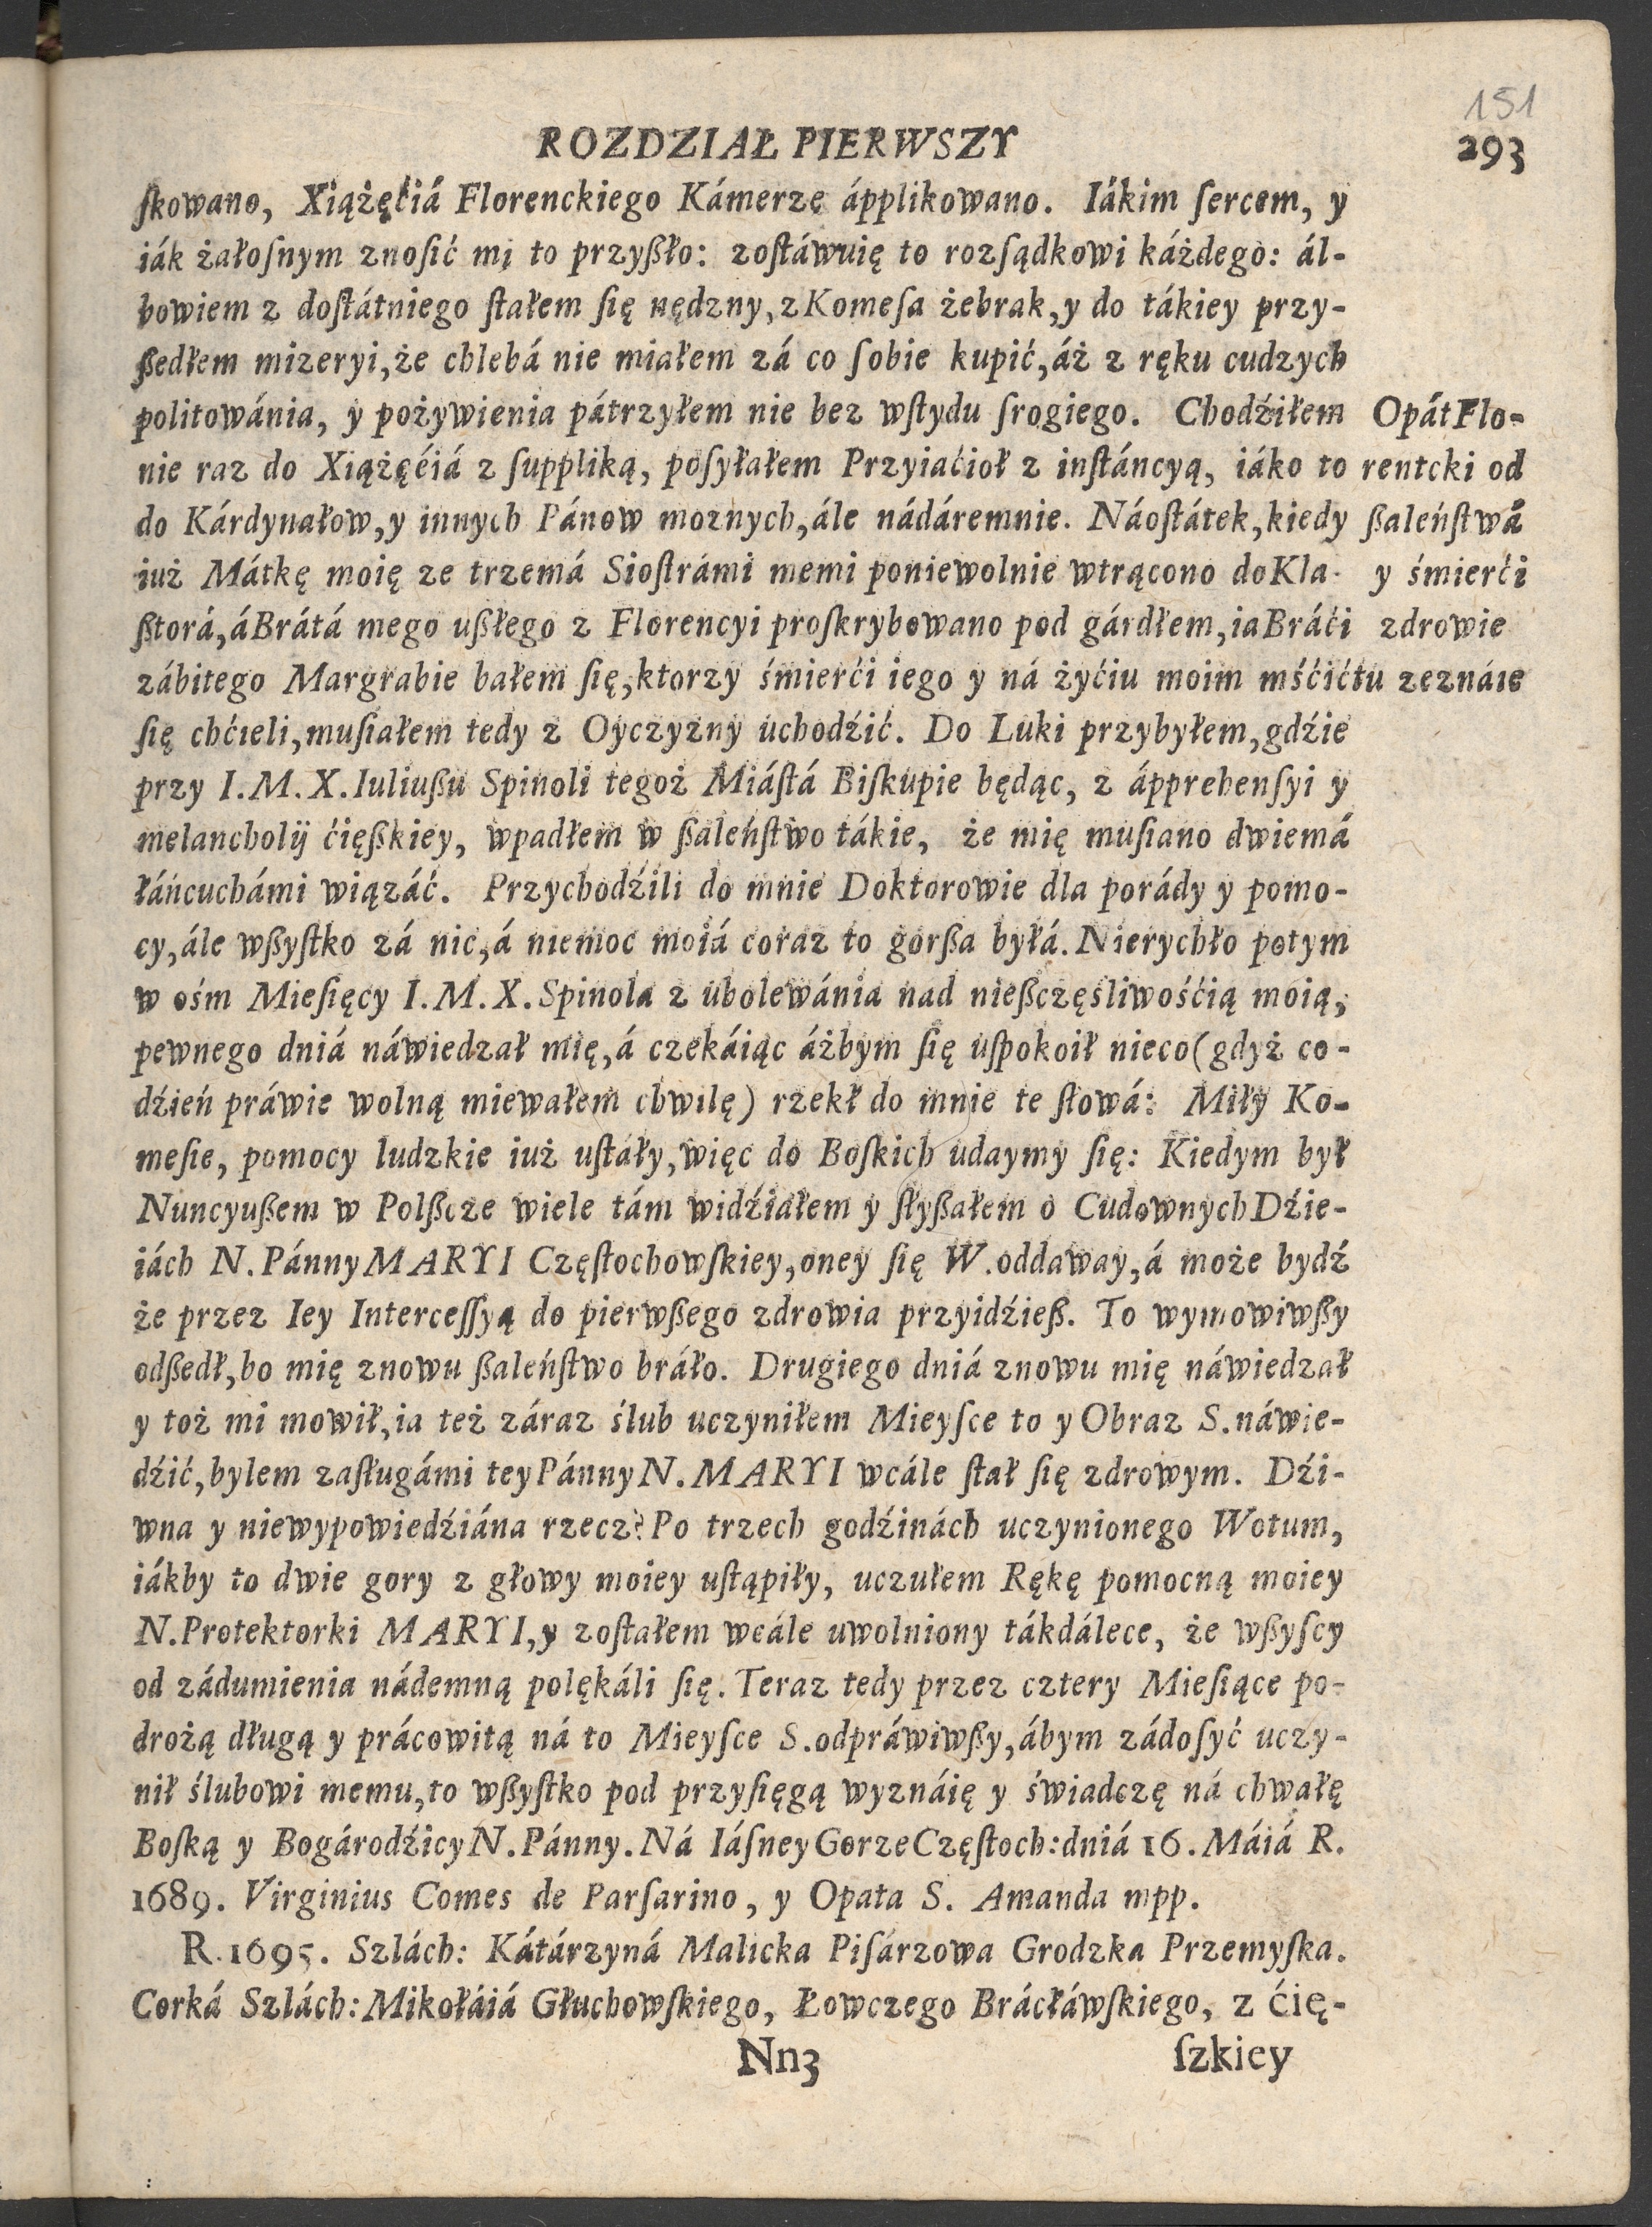 151
ROZDZIAŁ PIERWSZY 293
ſkowano, Xiążęćiá Florenckiego Kámerze ápplikowano. Iákim ſercem, y
iák żałoſnym znoſić mi to przyßło: zoſtáwuię to rozſądkowi káżdego: ál-
bowiem z doſtátniego ſtałem ſię nędzny, z Komeſa żebrak, y do tákiey przy-
ßedłem mizeryi, że chlebá nie miałem zá co ſobie kupić, áż z ręku cudzych
politowánia, y pożywienia pátrzyłem nie bez wſtydu ſrogiego. Chodźiłem
nie raz do Xiążęćiá z ſuppliką, poſyłałem Przyiaćioł z inſtáncyą, iáko to
do Kárdynałow, y innych Pánow moznych, ále nádáremnie. Náoſtátek, kiedy
iuż Mátkę moię ze trzemá Sioſtrámi memi poniewolnie wtrącono do Kla-
ßtorá, á Brátá mego ußłego z Florencyi proſkrybowano pod gárdłem, ia Bráći
zábitego Margrabie bałem ſię, ktorzy śmierći iego y ná żyćiu moim mśćić
ſię chćieli, muſiałem tedy z Oyczyzny uchodźić. Do Luki przybyłem, gdźie
przy I. M. X. Iuliußu Spinoli tegoż Miáſtá Biſkupie będąc, z ápprehenſyi y
melancholij ćięßkiey, wpadłem w ßaleńſtwo tákie, że mię muſiano dwiemá
łáńcuchámi wiązáć. Przychodźili do mnie Doktorowie dla porády y pomo-
cy, ále wßyſtko zá nic, á niemoc moiá coraz to gorßa byłá. Nierychło potym
w ośm Mieſięcy I. M. X. Spinola z ubolewánia nad nießczęśliwośćią moią,
pewnego dniá náwiedzał mię, á czekáiąc áżbym ſię uſpokoił nieco (gdyż co-
dźień práwie wolną miewałem chwilę) rzekł do mnie te ſłowá: Miły Ko-
meſie, pomocy ludzkie iuż uſtáły, więc do Boſkich udaymy ſię: Kiedym był
Nuncyußem w Polßcze wiele tám widźiałem y ſłyßałem o Cudownych Dźie-
iách N. Pánny MARYI Częſtochowſkiey, oney ſię W. oddaway, á może bydź
że przez Iey Interceſſyą do pierwßego zdrowia przyidźieß. To wymowiwßy
odßedł, bo mię znowu ßaleńſtwo bráło. Drugiego dniá znowu mię náwiedzał
y toż mi mowił, ia też záraz ślub uczyniłem Mieyſce to y Obraz S. náwie-
dźić, bylem zaſługámi tey Pánny N. MARYI wcále ſtał ſię zdrowym. Dźi-
wna y niewypowiedźiána rzecz? Po trzech godźinách uczynionego Wotum,
iákby to dwie gory z głowy moiey uſtąpiły, uczułem Rękę pomocną moiey
N. Protektorki MARYI, y zoſtałem wcále uwolniony tákdálece, że wßyſcy
od zádumienia nádemną polękáli ſię. Teraz tedy przez cztery Mieſiące po-
drożą długą y prácowitą ná to Mieyſce S. odpráwiwßy, ábym zádoſyć uczy-
nił ślubowi memu, to wßyſtko pod przyſięgą wyznáię y świadczę ná chwałę
Boſką y Bogárodźicy N. Pánny. Ná Iáſney Gorze Częſtoch: dniá 16. Máiá R.
1689. Virginius Comes de Parſarino, y Opata S. Amanda mpp.
R. 1695. Szlách: Kátárzyná Malicka Piſárzowa Grodzka Przemyſka.
Corká Szlách: Mikołáiá Głuchowſkiego, Łowczego Brácłáwſkiego, z ćię-
Nn3 ſzkiey
Opát Flo-
rentcki od
ßaleńſtwá
y śmierći
zdrowie
tu zeznáie